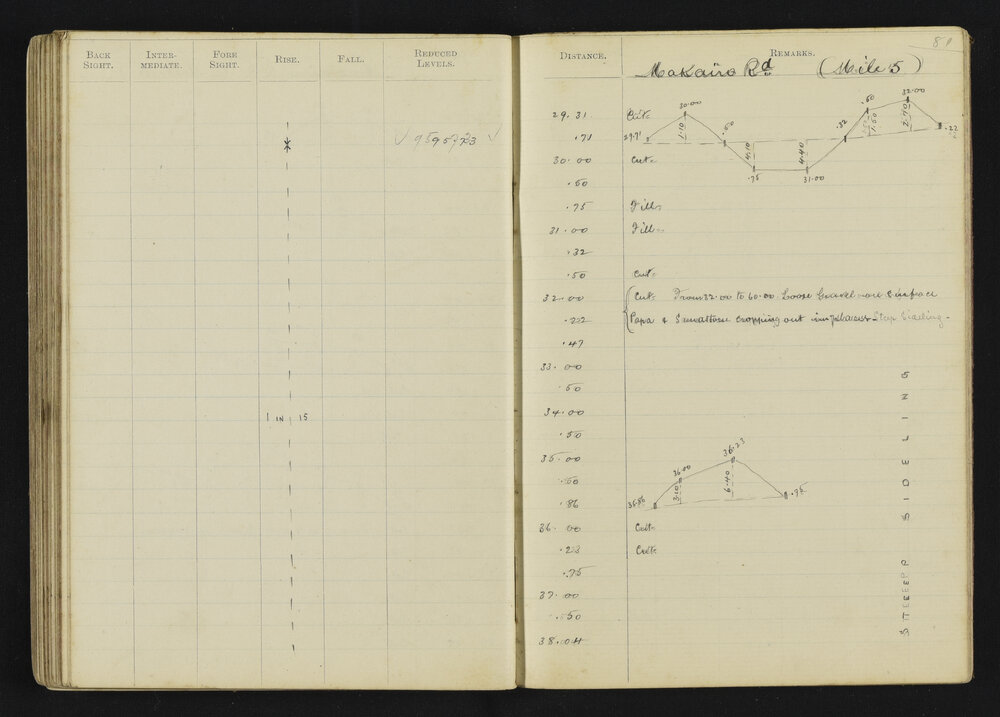 BACK SIGHT. INTER-MEDIATE. FORE SIGHT. RISE. FALL. REDUCED LEVELS.
1 IN 15
81
DISTANCE. REMARKS.
Makairo Rd (Mile 5)
29.31 Cut
.71
30.00 Cut
.50
.75 Fill
31.00 Fill
.32
.50 Cut
32.00 Cut From 32.00 to 60.00 Loose Gravel on Surface
.22 Papa & Sandstone cropping out in places Steep Siding
.47
33.00
.50
34.00
.50
35.00
.50
.86
36.00 Cut
.23 Cut
.75
37.00
.50
38.04
29.71 30.00 1.10 .50 4.10 .75 4.40 31.00 .32 .50 1.50 32.00 2.70 .22
35.86 36.00 3.10 36.23 6.40 .75
STEEP SIDELING